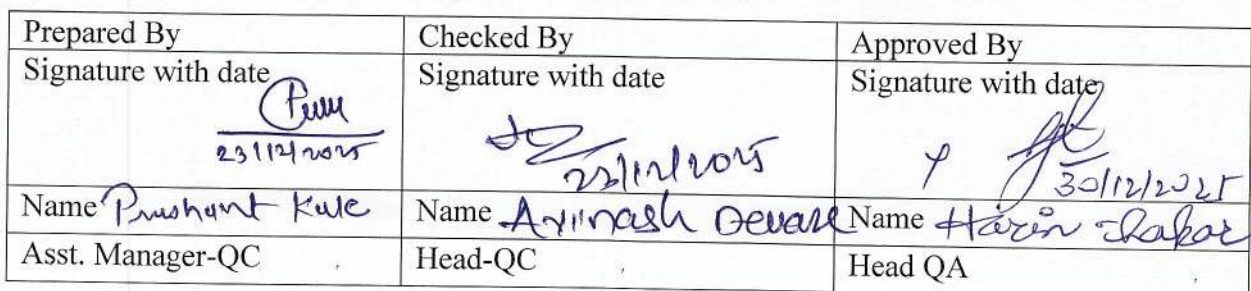 Prepared By Checked By Approved By
Signature with date Signature with date Signature with date
23/12/2025 23/12/2025 30/12/2025
Name Prashant Kale Name Avinash Deware Name Harin Thakar
Asst. Manager-QC Head-QC Head QA